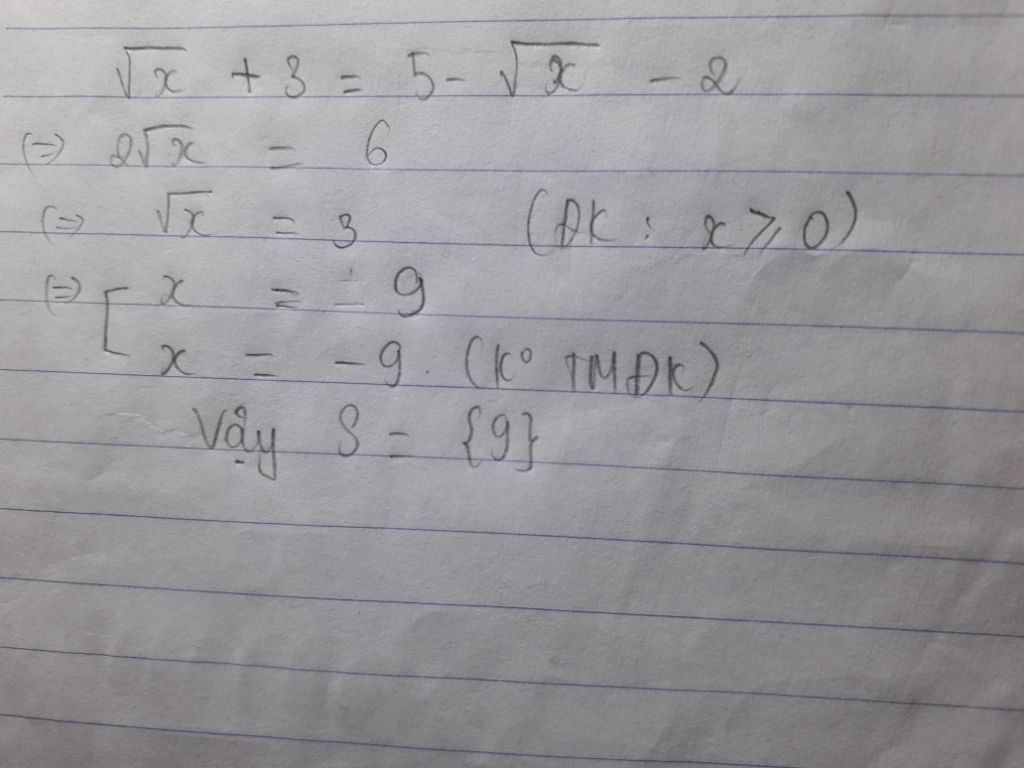 √x + 3 = 5 - √x - 2
(=) 2√x = 6
(=) √x = 3 (ĐK : x ⩾ 0)
(=) [ x = 9
x = -9. (K° TMĐK)
Vậy S = {9}